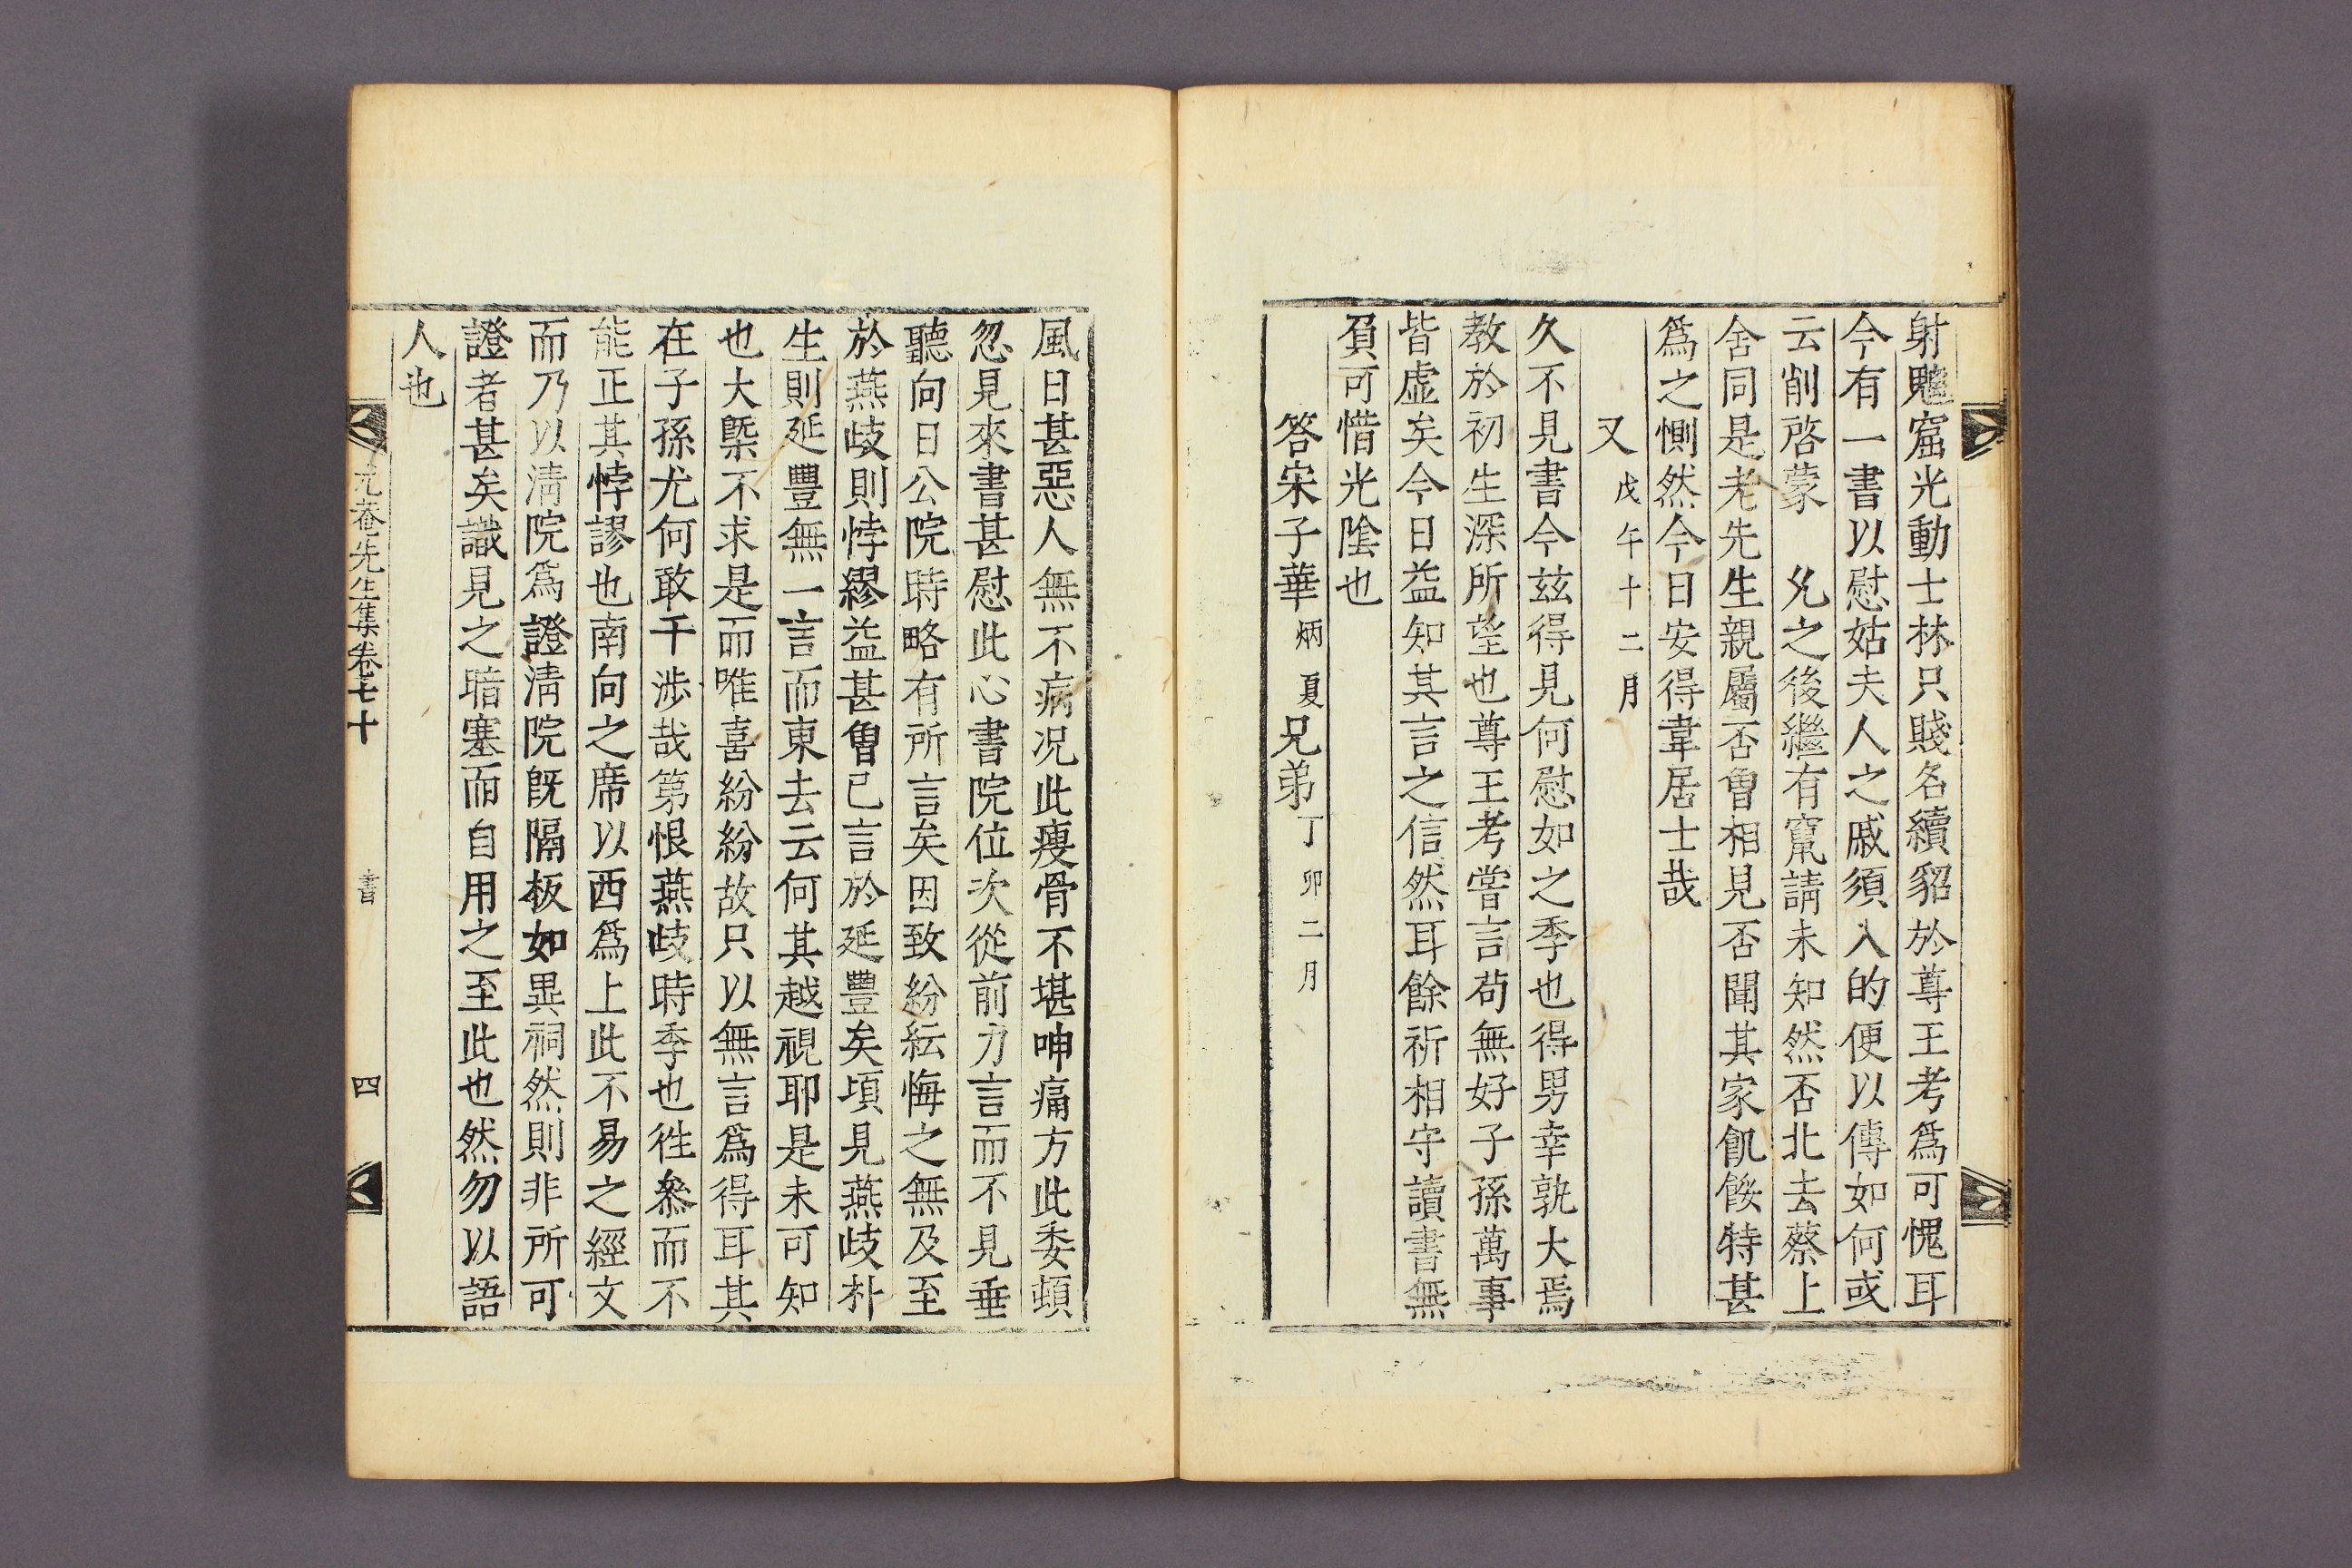 射魑窟光動士林只賤名續貂於尊王考爲可愧耳
今有一書以慰姑夫人之戚須入的便以傳如何或
云削啓蒙 允之後繼有竄請未知然否北去蔡上
舍同是老先生親屬否曾相見否聞其家飢餒特甚
爲之惻然今日安得韋居士哉
又戊午十二月
久不見書今玆得見何慰如之季也得男幸孰大焉
教於初生深所望也尊王考嘗言苟無好子孫萬事
皆虛矣今日益知其言之信然耳餘祈相守讀書無
負可惜光陰也
答宋子華炳夏兄弟丁卯二月
風日甚惡人無不病况此瘦骨不堪呻痛方此委頓
忽見來書甚慰此心書院位次從前力言而不見垂
聽向日公院時略有所言矣因致紛紜悔之無及至
於燕歧則悖繆益甚曾已言於延豐矣頃見燕歧朴
生則延豐無一言而東去云何其越視耶是未可知
也大槩不求是而唯喜紛紛故只以無言爲得耳其
在子孫尤何敢干涉哉第恨燕歧時季也徃叅而不
能正其悖謬也南向之席以西爲上此不易之經文
而乃以淸院爲證淸院旣隔板如異祠然則非所可
證者甚矣識見之暗塞而自用之至此也然勿以語
人也
尤菴先生集卷七十 書 四